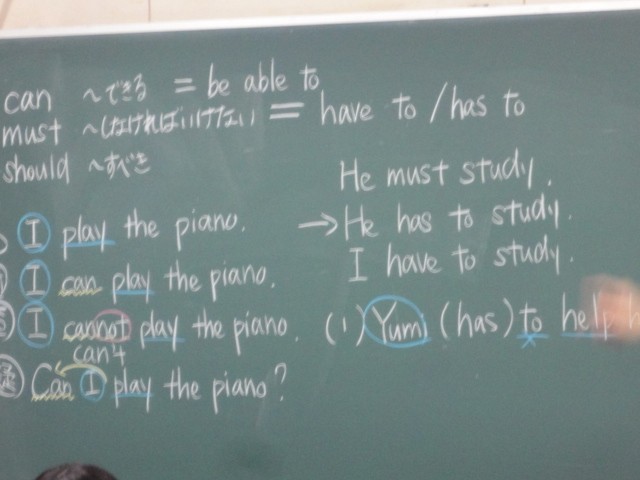 can ～できる = be able to
must ～しなければいけない = have to / has to
should ～すべき
He must study.
→ He has to study.
I have to study.
I play the piano.
I can play the piano.
I cannot play the piano.
can't
Can I play the piano?
(1) Yumi (has) to help